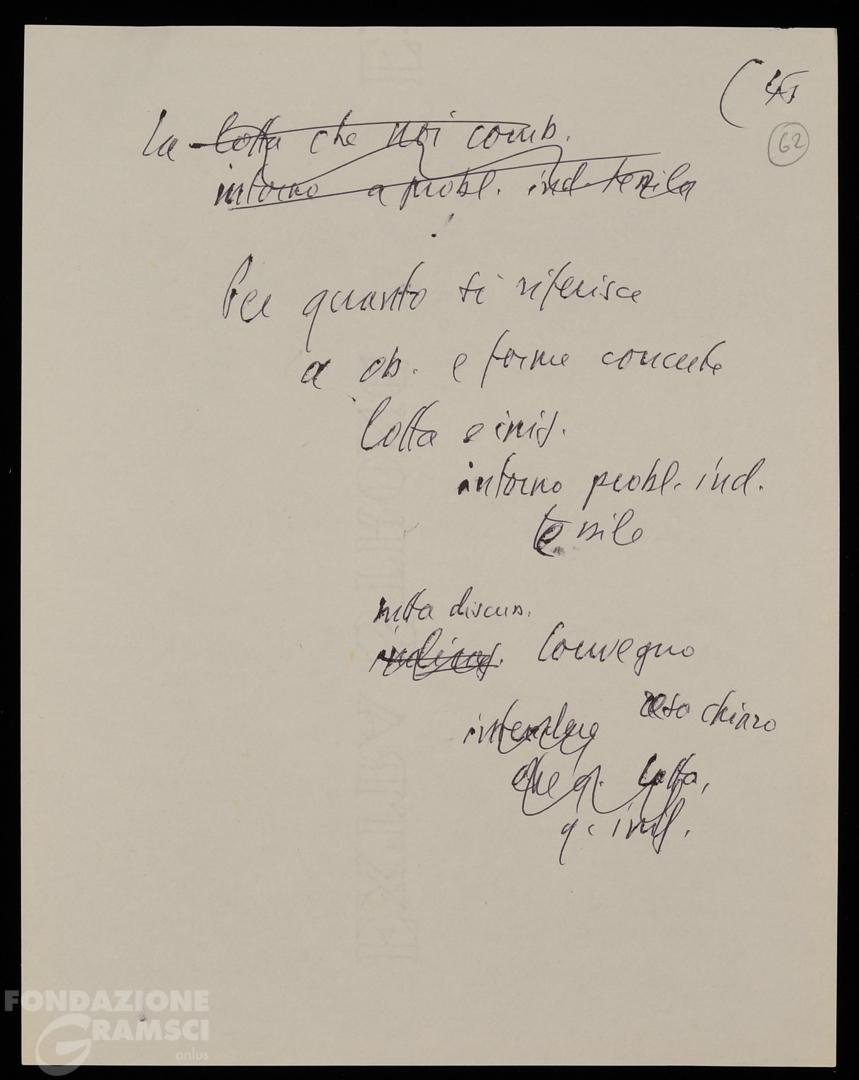 62
La lotta che noi comb.
intorno a probl. ind. tessile
Per quanto si riferisce
a ob. e forme concrete
lotta e iniz.
intorno probl. ind.
tessile
nella discuss.
Convegno
reso chiaro
che q. lotta,
q. iniz.
FONDAZIONE
GRAMSCI
onlus